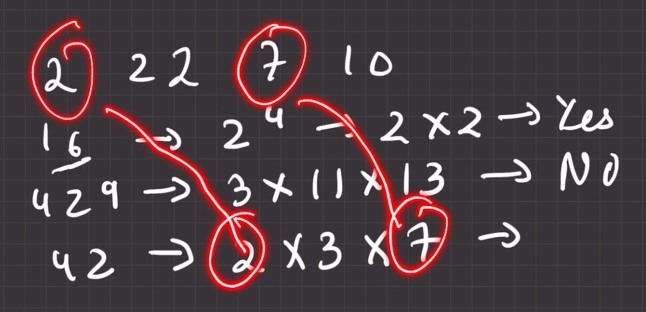 2 22 7 10
16 → 2⁴ → 2 × 2 → Yes
429 → 3 × 11 × 13 → NO
42 → 2 × 3 × 7 →